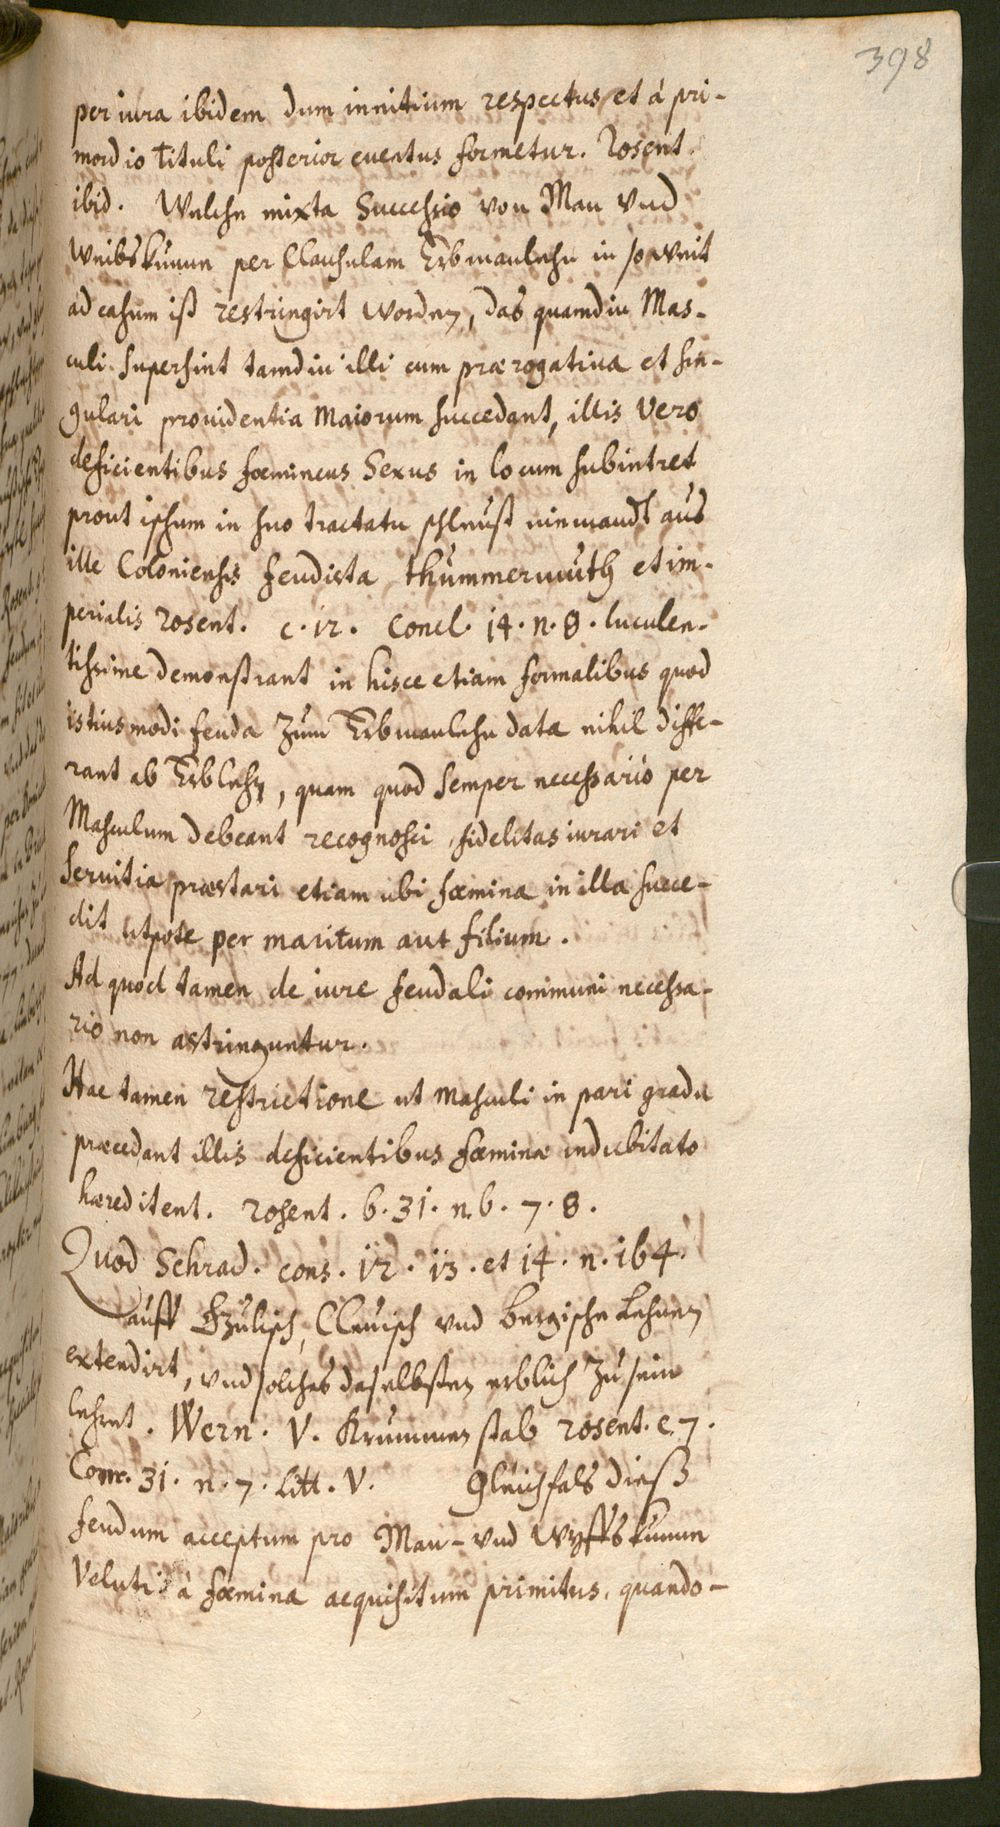 398
per iura ibidem dum innitium respectus et à pri-
mordio tituli posterior euentus formetur. Rosent.
ibid. Welche mixta Successio von Man vnd
Weibskunne per Clausulam Erbmanlehn in so weit
ad casum ist restringirt worden, das quamdiu Mas-
culi supersint tamdiu illi cum prærogatiua et sin-
gulari prouidentia Maiorum succedant, illis Vero
deficientibus fœmineus Sexus in locum subintret
prout ipsum in suo tractatu schleust niemandt aus
ille Coloniensis feudista thummermuth et im-
perialis rosent. c. 12. Concl. 14. n. 8. luculen-
tissime demonstrant in hisce etiam formalibus quod
istiusmodi feuda Zum Erbmanlehn data nihil diffe-
rant ab Erblehn, quam quod semper necessario per
Masculum debeant recognosci, fidelitas iurari et
seruitia præstari etiam ubi fœmina in illa succe-
dit utpote per maritum aut filium.
Ad quod tamen de iure feudali communi necessa-
rio non astringuntur.
Hac tamen restrictione ut masculi in pari gradu
præcedant illis deficientibus fœminæ indubitato
hæreditent. rosent. 6. 31. n. 6. 7. 8.
Quod Schrad. cons. 12. 13. et 14. n. 164.
auff Gülisch, Cleuisch vnd bergische Lehnen
extendirt, vnd solches daselbsten erblich Zu sein
lehret. Wern. V. Krummen stab rosent. c. 7.
Conc. 31. n. 7. litt. V. Gleichfals dieß
feudum acceptum pro Man- vnd Wyffskunne
Veluti à fœmina acquisitum primitus, quando-